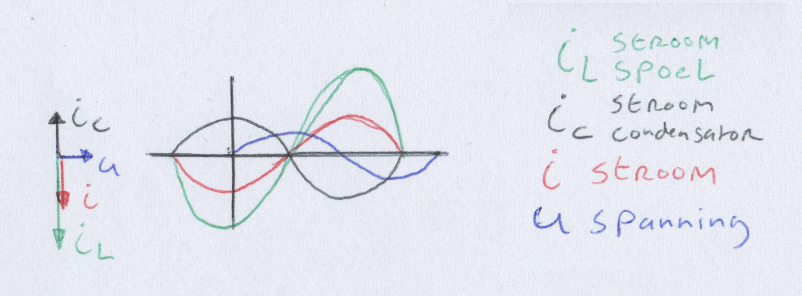 i_C
u
i
i_L
i_L STROOM SPOEL
i_C STROOM condensator
i STROOM
u spanning